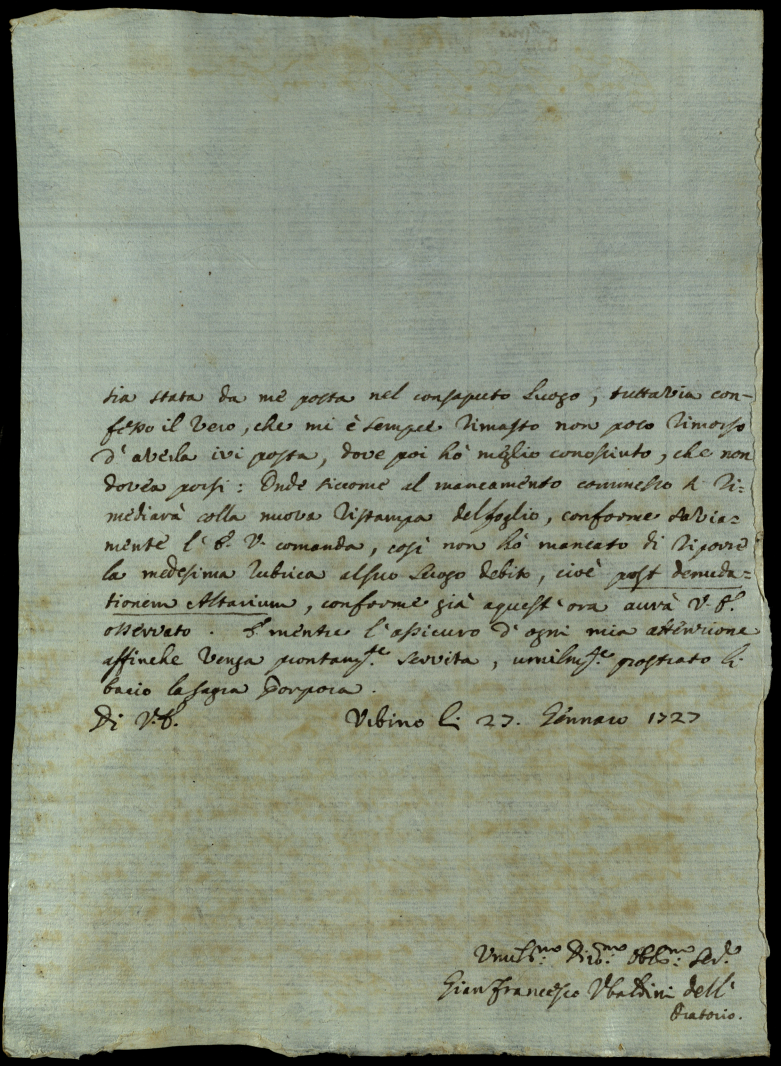 sia stata da me posta nel consaputo luogo, tuttavia con-
fesso il vero, che mi è sempre rimasto non poco rimorso
d'averla ivi posta, dove poi hò meglio conosciuto, che non
dovea porsi: Onde siccome al mancamento commesso si ri=
mediarà colla nuova ristampa del foglio, conforme
mente l'E. V. comanda, così non hò mancato di riporre
la medesima rubrica al suo luogo debito, cioè post denuda=
tionem Altarium, conforme già a quest'ora aurà V. E.
osservato. E mentre l'assicuro d'ogni mia attenzione
affinche venga prontam.te servita, umilm.te prostrato le
bacio la sagra Porpora.
Di V. E. Urbino li 27. Gennaro 1727
Umil.mo Div.mo Obb.mo Ser.e
Gian Francesco Ubaldini dell'
Oratorio.